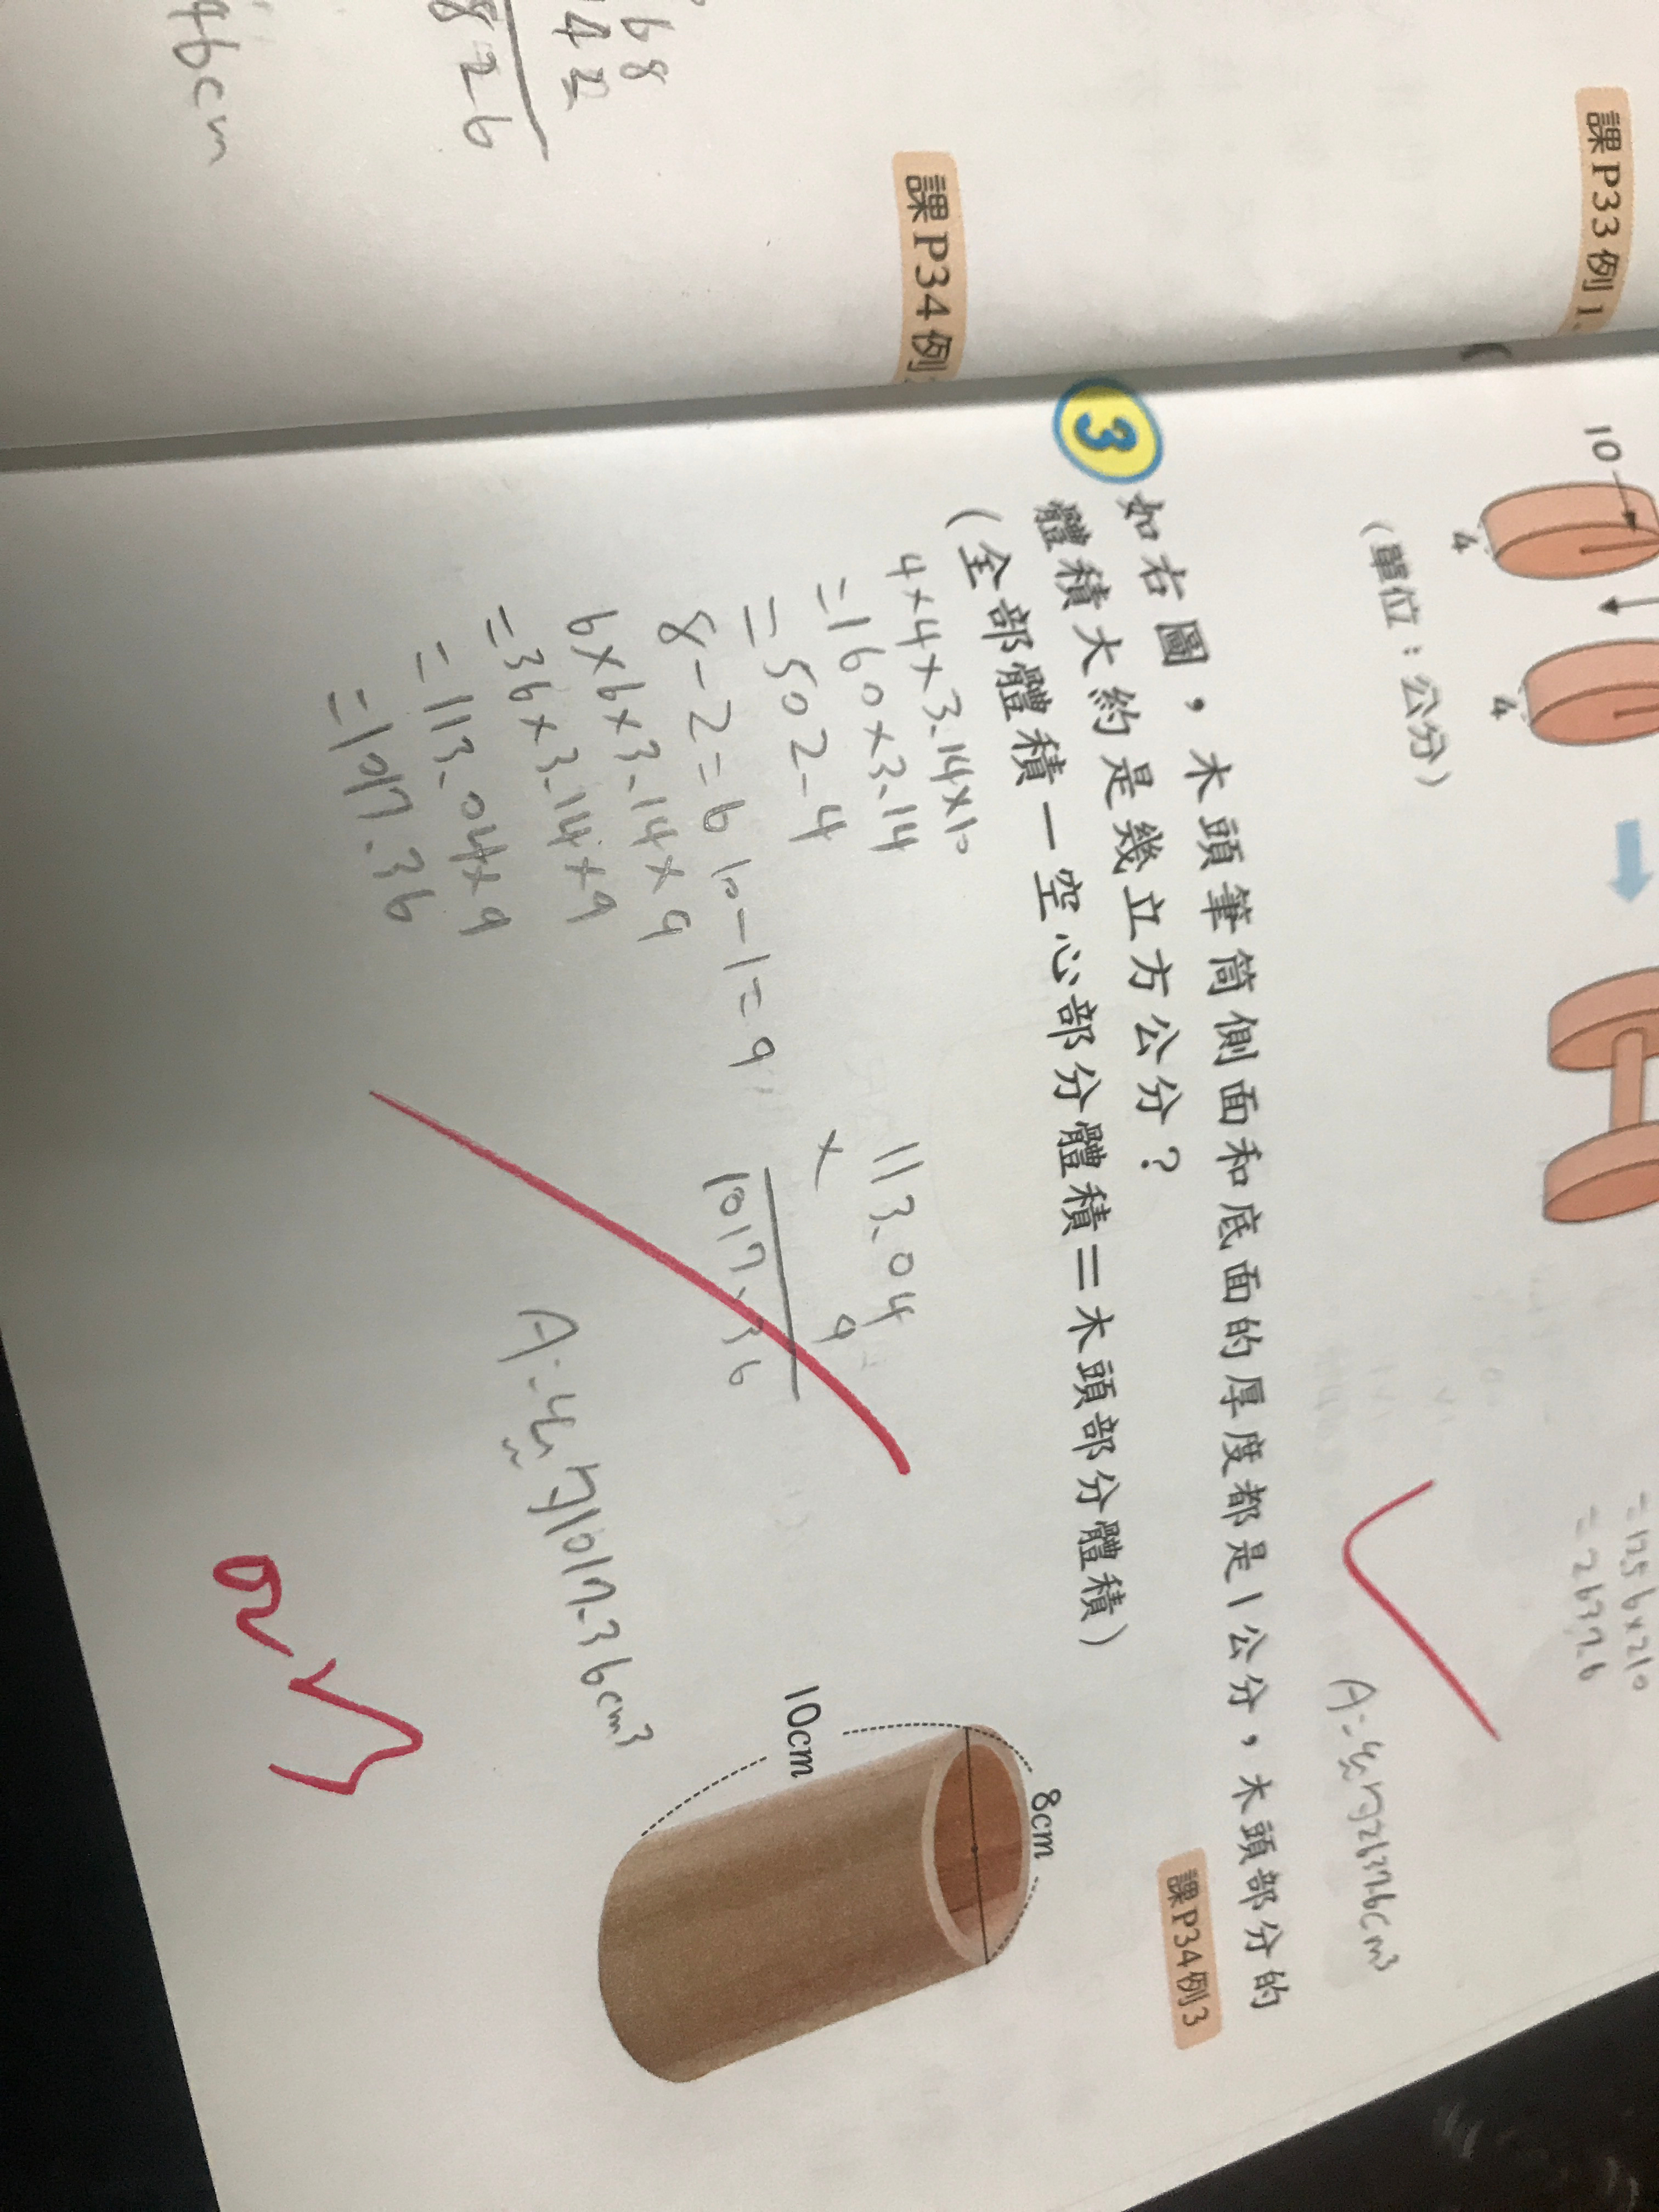 68
42
826
46cm
課P34例
課P33例1
10
4
4
(單位：公分)
=12.56×210
=2637.6
A：約2637.6cm³
3
如右圖，木頭筆筒側面和底面的厚度都是1公分，木頭部分的
體積大約是幾立方公分？
(全部體積－空心部分體積＝木頭部分體積)
課P34例3
4×4×3.14×10
=160×3.14
=502.4
8-2=6 10-1=9
6×6×3.14×9
=36×3.14×9
=113.04×9
=1017.36
113.04
× 9
1017.36
A：約1017.36cm³
8cm
10cm